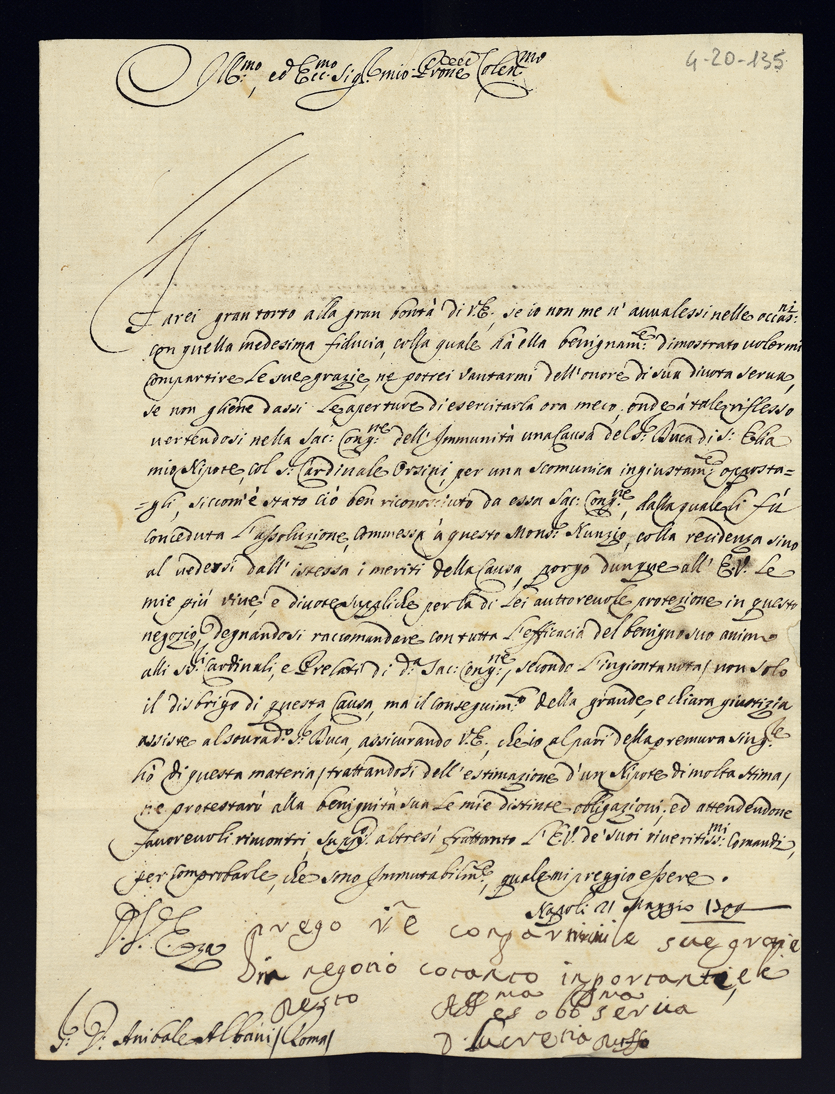 Ill:mo, ed Ecc:mo Sig:r mio Prone Colen:mo
4-20-135
Farei gran torto alla gran bontà di V.E., se io non me n' auualessi nelle occas:ni
con quella medesima fiducia, colla quale hà ella benignam:e dimostrato uolermi
compartire le sue grazie, ne potrei vantarmi dell'onore di sua diuota serua,
se non gliene dassi le aperture di esercitarla ora meco, onde à tale riflesso
uertendosi nella Sac: Cong:ne dell'Immunità una Causa del S:r Duca di S: Elia
mio Nipote, col S:r Cardinale Orsini, per una scomunica ingiustam:e oposta=
=gli, siccom'è stato ciò ben riconosciuto da essa Sac: Cong:ne, dalla quale li fù
conceduta l'assoluzione, commessa à questo Mons:r Nunzio, colla reuidenza sino
al uedersi dall'istessa i meriti della Causa, porgo dunque all'E.V. le
mie più viue, e diuote suppliche per la di Lei auttoreuole protezione in questo
negozio, degnandosi raccomandare con tutta l'efficacia del benigno suo animo
alli SS:ri Cardinali, e Prelati di d:a Sac: Cong:ne, secondo l'ingionta nota, non solo
il disbrigo di questa Causa, ma il conseguim:to della grande, e chiara giustizia
assiste al sourad:o S:r Duca, assicurando V.E., che io al pari della premura sing:le
hò di questa materia, trattandosi dell'estimazione d'un Nipote di molta stima,
ne protestarò alla benignità sua le mie distinte obligazioni, ed attendendone
fauoreuoli riscontri supp:co altresì frattanto l'E.V. de' suoi riueritiss:mi Comandi,
per comprobarle, che sono Immutabilm:e, quale mi preggio essere.
Napoli 21 Maggio 1700
D. V. Ecza
prego V.e le sue grazie
in negotio cotanto inportante, e le
resto
Aff:ma es obb:ma serua
D. Lucretia Ruffo
S:r D. Anibale Albani (Roma)